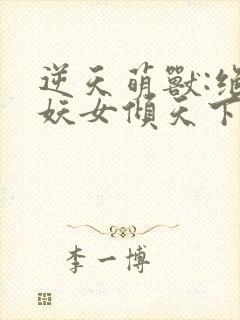 逆天萌獸:絕
妖女傾天下
李一博